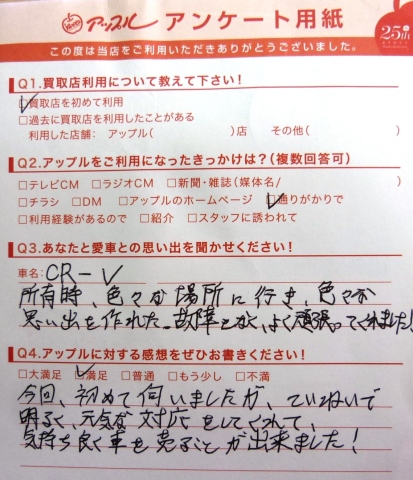 アップル アンケート用紙
25th
この度は当店をご利用いただきありがとうございました。
Q1.買取店利用について教えて下さい!
☑買取店を初めて利用
□過去に買取店を利用したことがある
利用した店舗: アップル( )店 その他( )
Q2.アップルをご利用になったきっかけは?(複数回答可)
□テレビCM □ラジオCM □新聞・雑誌(媒体名/ )
□チラシ □DM □アップルのホームページ ☑通りがかりで
□利用経験があるので □紹介 □スタッフに誘われて
Q3.あなたと愛車との思い出を聞かせてください!
車名:CR-V
所有時、色々な場所に行き、色々な
思い出を作れた。故障もなく、よく頑張ってくれました!
Q4.アップルに対する感想をぜひお書きください!
□大満足 ☑満足 □普通 □もう少し □不満
今回、初めて伺いましたが、ていねいで
明るく、元気な対応をしてくれて、
気持ち良く車を売ることが出来ました!